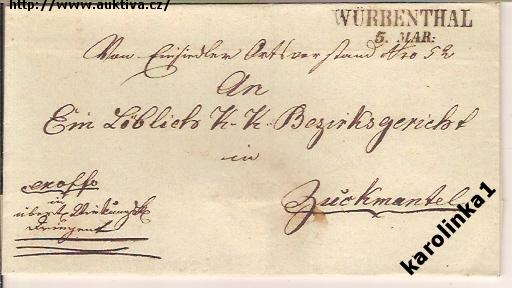 http://www.auktiva.cz/
WÜRBENTHAL
5. MAR:
Von Einsiedler Ortsvorstand Nro 52
An
Ein Löblichs K. K. Bezirksgericht
in
Zuckmantel
exoffo
in
Dringend
karolinka1